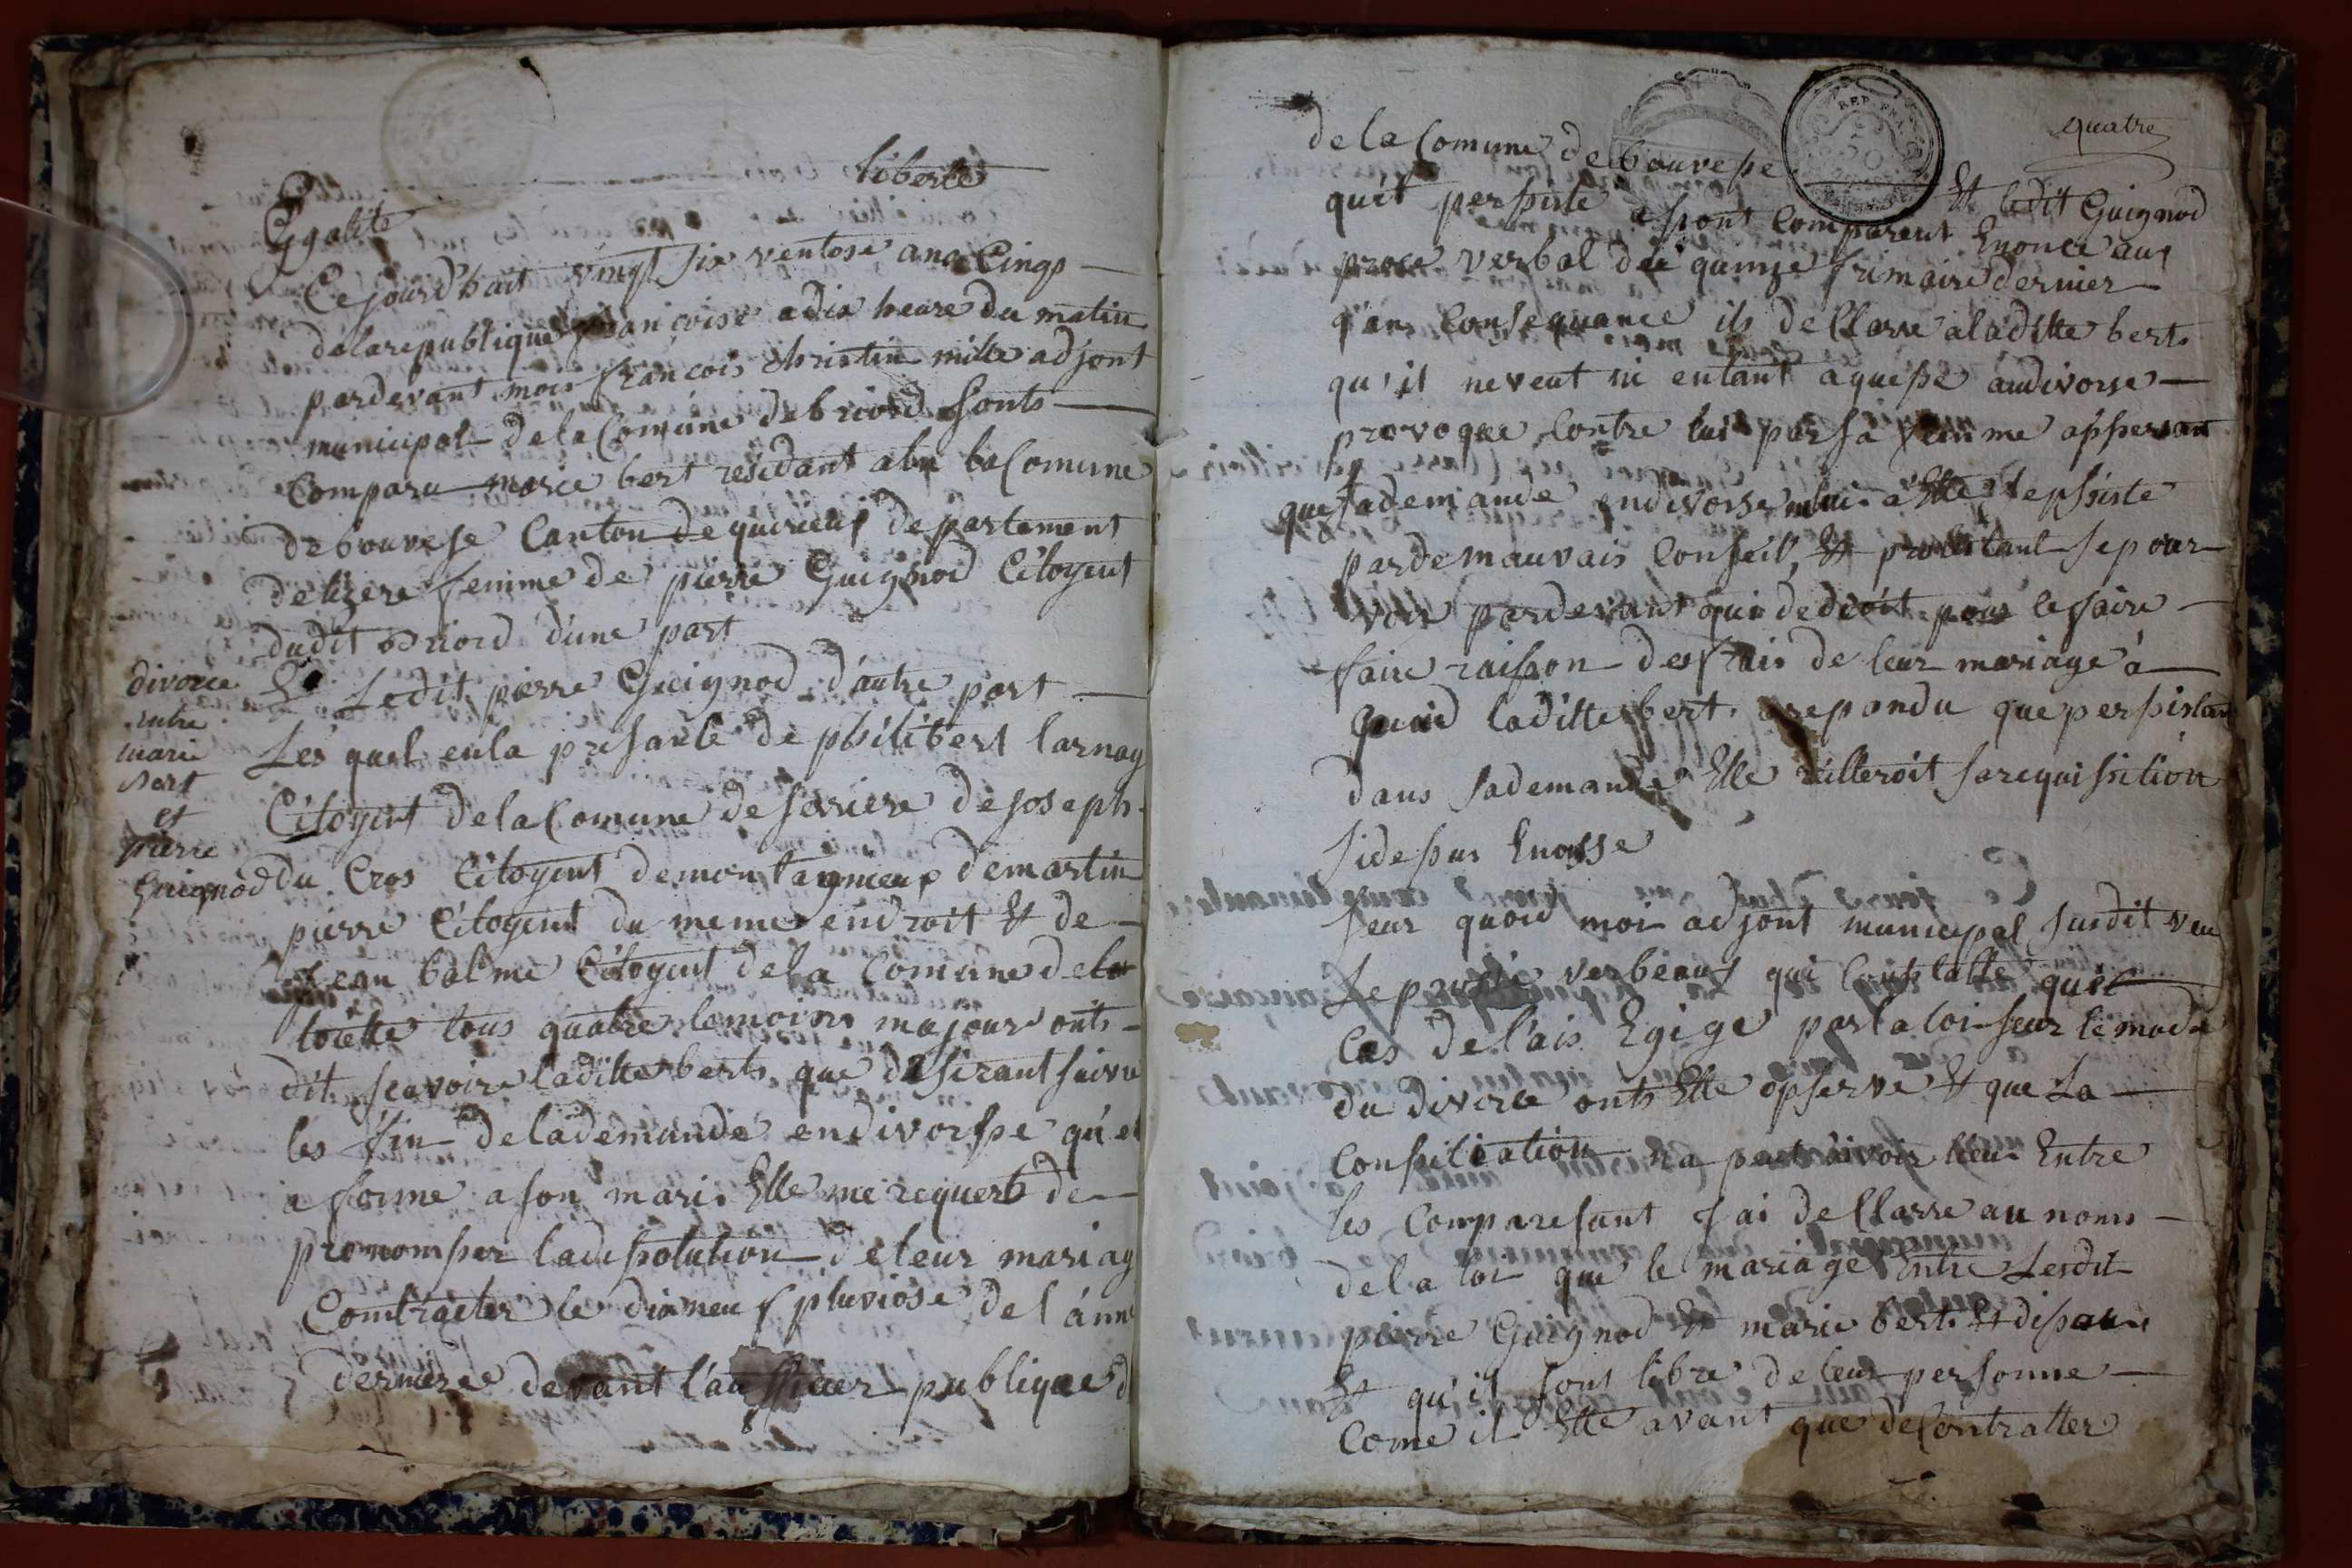 liberté
Egalité
Cejourd'huit vingt six ventose ana Cinqs
delarepublique françoise adix heure du matin
pardevant mois francois christin mille adjont
municipal dela Comune debriord sonts
Comparu marie bert residant alu la Comune
debouvese Canton de quirieux departement
delizere femme de pierre Guignod Citoyent
dudit Briord d'une part
Et Ledit pierre Guignod d'autre part
Les quel enla presante de philibert larnay
Citoyent dela Comune deseriere de joseph
du Cros Citoyent demontagnieux demartin
pierre Citoyent du meme endroit Et de
jean balme Citoyent dela Comune dela
loiette tous quatre temoins majeur onts
dit scavoire laditte berts que desirant suivre
les fin delademande endivorsse qu'el
a forme a son mari Elle me requert de
prononser ladissolution deleur mariag
Contracter le dixneuf pluviôse de l'anné
derniere devant l'aufficier publique d
divorce
entre
marie
Bert
et
pierre
Guignod
quatre
REP. FRA.
dela Comune debouvesse
Et ledit Guignod
quit persiste a sont Comparent Enonce aus
proce verbal du quinze frimaire dernier
q'an Consequance ils dellare aladitte berts
qu'il neveut ni entant aquese audivorse
provoque Contre lui par sa femme
que sademande endivorse a Elle
pardemauvais Conseil, Et protestant sepour
voir pardevant qui dedroit pour lefaire
faire raisson des frais de leur mariage à
quoid laditte bert a repondu que persistan
dans sademande Elle sarequissition
side sus Enonsse
seur quoid moi adjont municipal susdit veu
Le verbeaux qui Constatte que
Les delais Egige parla loi seur le mode
du divorce onts Ette opserve Et que La
Consiliation na put avoir lieu Entre
les Comparesant J'ai dellarre au noms
dela loi que le mariage Entre Lesdit
pierre Guignod Et marie berts Et
Et qu'il sont libre de leur personne
Come il Ette avant que deContratter